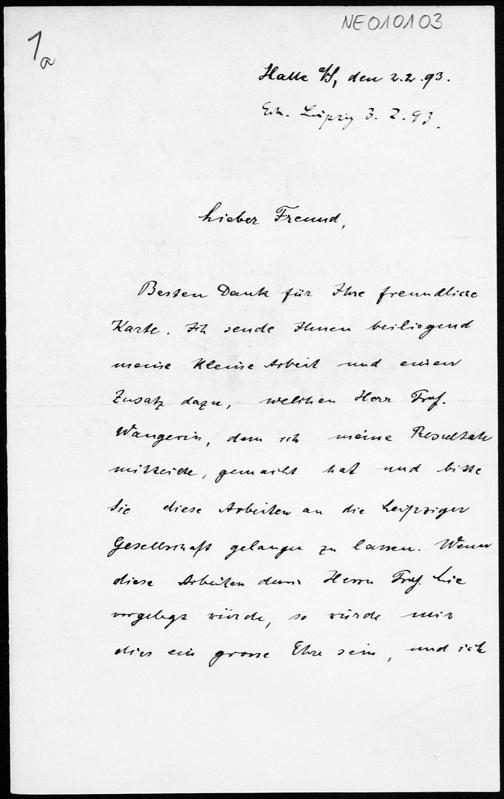 NE010103
1a
Halle a/S, den 2.2.93.
Erh. Leipzig 3.2.93.
Lieber Freund,
Besten Dank für Ihre freundliche
Karte. Ich sende Ihnen beiliegend
meine kleine Arbeit und einen
Zusatz dazu, welchen Herr Prof.
Wangerin, dem ich meine Resultate
mitteilte, gemacht hat und bitte
Sie diese Arbeiten an die Leipziger
Gesellschaft gelangen zu lassen. Wenn
diese Arbeiten denn Herrn Prof. Lie
vorgelegt würde, so würde mir
dies ein grosse Ehre sein, und ich